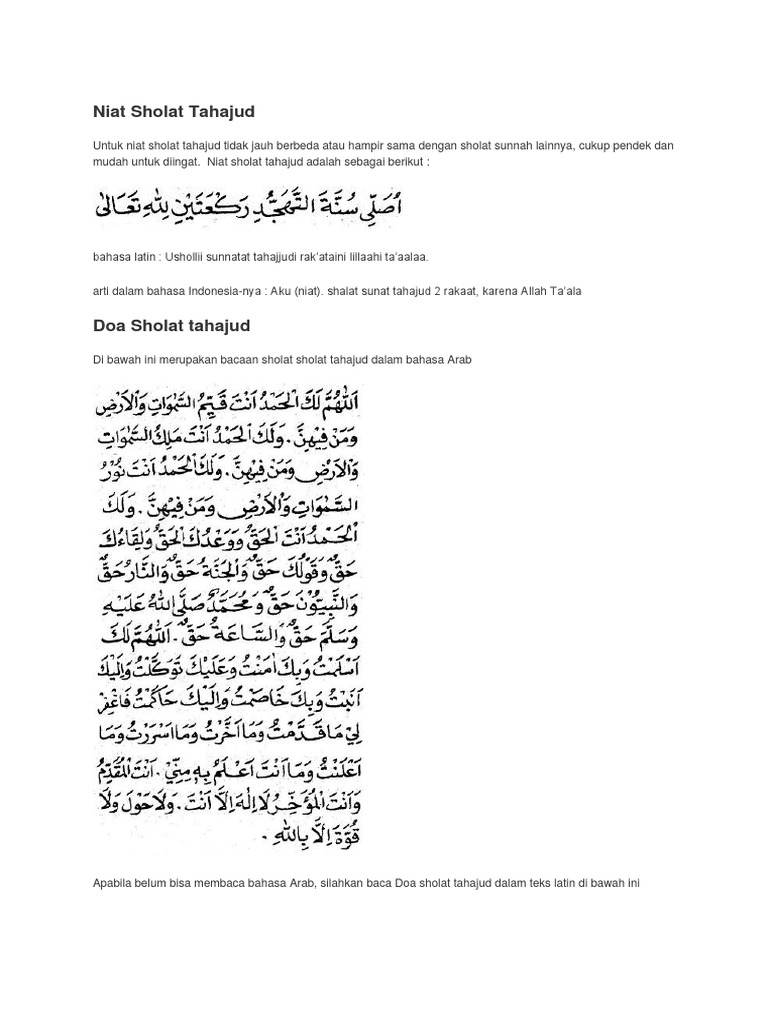 Niat Sholat Tahajud
Untuk niat sholat tahajud tidak jauh berbeda atau hampir sama dengan sholat sunnah lainnya, cukup pendek dan
mudah untuk diingat.  Niat sholat tahajud adalah sebagai berikut :
اُصَلِّى سُنَّةَ التَّهَجُّدِ رَكْعَتَيْنِ لِلّٰهِ تَعَالٰى
bahasa latin : Ushollii sunnatat tahajjudi rak’ataini lillaahi ta’aalaa.
arti dalam bahasa Indonesia-nya : Aku (niat). shalat sunat tahajud 2 rakaat, karena Allah Ta’ala
Doa Sholat tahajud
Di bawah ini merupakan bacaan sholat sholat tahajud dalam bahasa Arab
اَللّٰهُمَّ لَكَ الْحَمْدُ اَنْتَ قَيِّمُ السَّمٰوَاتِ وَالْاَرْضِ
وَمَنْ فِيْهِنَّ . وَلَكَ الْحَمْدُ اَنْتَ مَلِكُ السَّمٰوَاتِ
وَالْاَرْضِ وَمَنْ فِيْهِنَّ . وَلَكَ الْحَمْدُ اَنْتَ نُوْرُ
السَّمٰوَاتِ وَالْاَرْضِ وَمَنْ فِيْهِنَّ . وَلَكَ
الْحَمْدُ اَنْتَ الْحَقُّ وَوَعْدُكَ الْحَقُّ وَلِقَاءُكَ
حَقٌّ وَقَوْلُكَ حَقٌّ وَالْجَنَّةُ حَقٌّ وَالنَّارُ حَقٌّ
وَالنَّبِيُّوْنَ حَقٌّ وَمُحَمَّدٌ صَلَّى اللهُ عَلَيْهِ
وَسَلَّمَ حَقٌّ وَالسَّاعَةُ حَقٌّ . اَللّٰهُمَّ لَكَ
اَسْلَمْتُ وَبِكَ اٰمَنْتُ وَعَلَيْكَ تَوَكَّلْتُ وَاِلَيْكَ
اَنَبْتُ وَبِكَ خَاصَمْتُ وَاِلَيْكَ حَاكَمْتُ فَاغْفِرْ
لِيْ مَا قَدَّمْتُ وَمَا اَخَّرْتُ وَمَا اَسْرَرْتُ وَمَا
اَعْلَنْتُ وَمَا اَنْتَ اَعْلَمُ بِهٖ مِنِّيْ . اَنْتَ الْمُقَدِّمُ
وَاَنْتَ الْمُؤَخِّرُ لَا اِلٰهَ اِلَّا اَنْتَ . وَلَا حَوْلَ وَلَا
قُوَّةَ اِلَّا بِاللهِ .
Apabila belum bisa membaca bahasa Arab, silahkan baca Doa sholat tahajud dalam teks latin di bawah ini